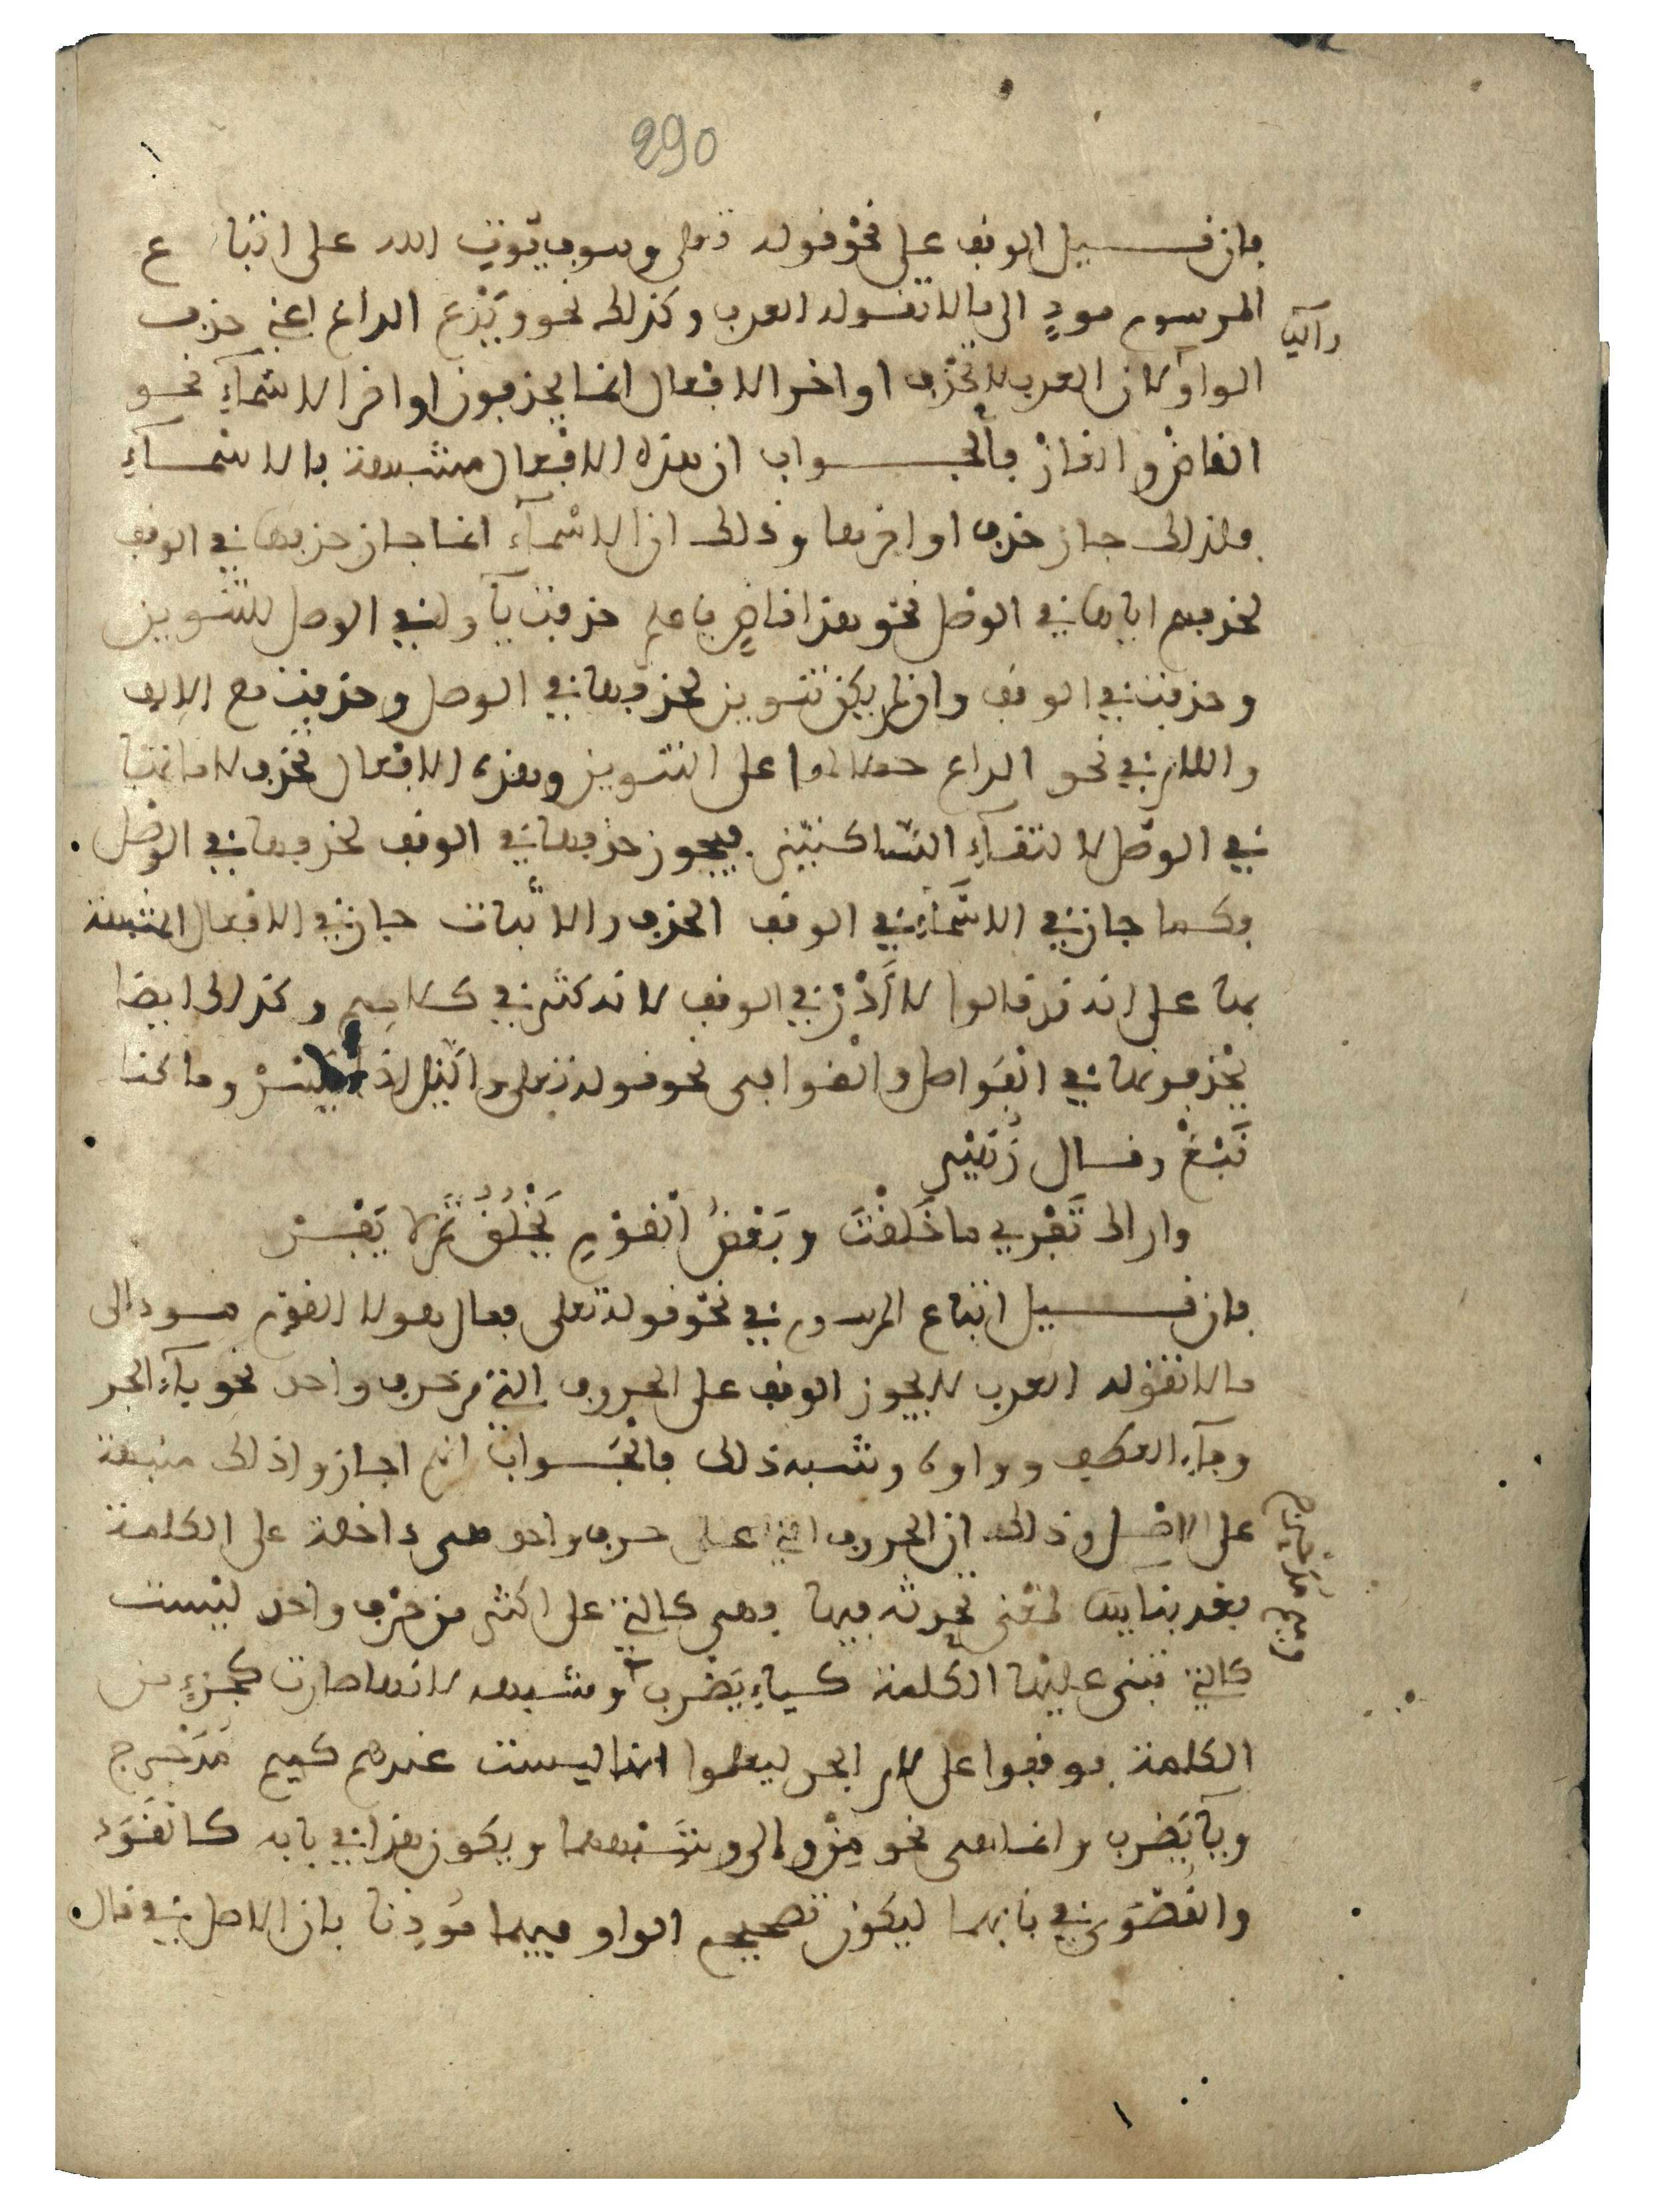 290
فان قيل الوقف على نحو قوله تعلى وسوف يوت الله على اتباع
المرسوم مودٍ الى ما لا تقوله العرب وكذلك نحو ويدع الداع اعني حذف
الواو لان العرب لا تحذف اواخر الافعال انما يحذفون اواخر الاسماء نحو
القاض والغاز فالجواب ان هذه الافعال مشبهة بالاسماء
فلذلك جاز حذف اواخرها وذلك ان الاسماء انما جاز حذفها في الوقف
لحذفهم اياها في الوصل نحو هذا قاضٍ فاعلم حذفت ياوه في الوصل للتنوين
وحذفت في الوقف وان لم يكن تنوين لحذفها في الوصل وحذفت مع الالف
واللام في نحو الداع حملا لها على التنوين وهذه الافعال تحذف لاماتها
في الوصل لالتقاء الساكنين فيجوز حذفها في الوقف لحذفها في الوصل
وكما جاز في الاسماء في الوقف الحذف والاثبات جاز في الافعال المشبهة
بها على انه قد قالوا لا أدر في الوقف لانه كثر في كلامهم وكذلك ايضا
يحذفونها في الفواصل والقوافي نحو قوله تعلى واليل اذا يسر وما كنا
نبغ وقال زهير
واراك تفري ما خلقت وبعض القوم يخلق ثم لا يفر
فان قيل اتباع المرسوم في نحو قوله تعلى فمال هولا القوم مود الى
ما لا تقوله العرب لا يجوز الوقف على الحروف التي من حرف واحد نحو باء الجر
وفاء العطف وواوه وشبه ذلك فالجواب انهم اجازوا ذلك منبهة
على الاصل وذلك ان الحروف التي على حرف واحد هي داخلة على الكلمة
بعد بنايها لمعنى تحدثه فيها فهي كالتي على اكثر من حرف واحد ليست
كالتي تبنى عليها الكلمة كياء يضرب وشبهه لانها صارت كجزء من
الكلمة فوقفوا على لام الجر ليعلموا انها ليست عندهم كميم مدحرج
وياء يضرب وانما هي نحو من والى وشبههما ويكون هذا في بابه كالقود
والقصوى في بابهما ليكون تصحيح الواو فيهما موذنا بان الاصل في قال